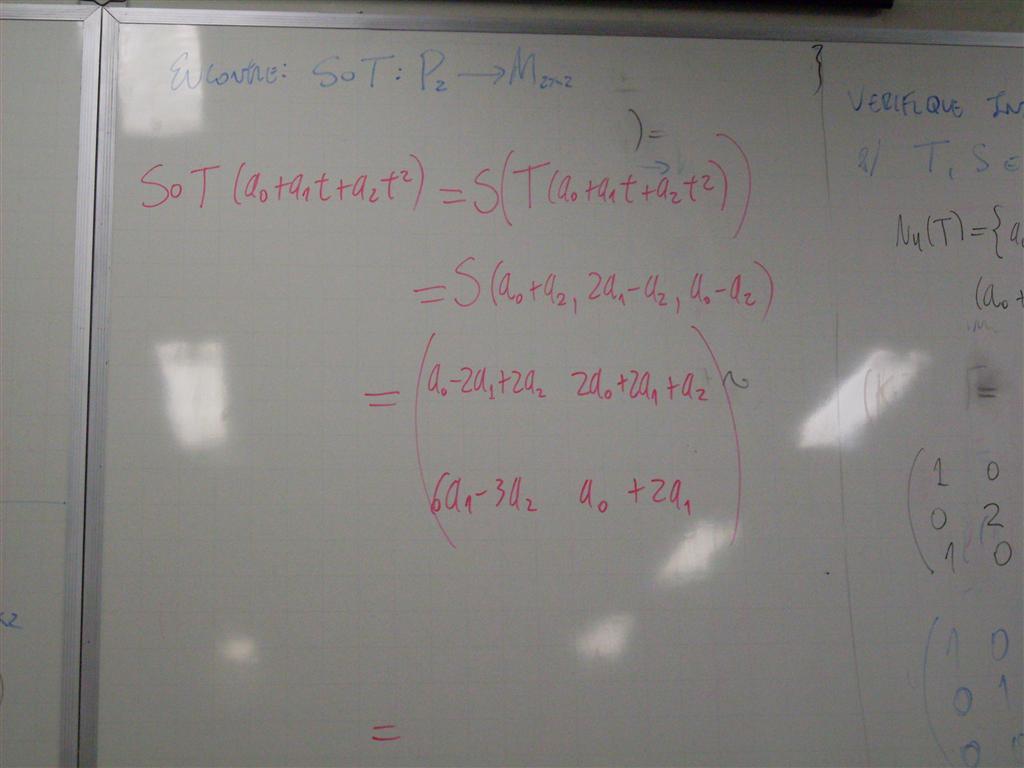 ENCONTRE: SoT: P₂ → M₂ₓ₂
)=
SoT (a₀+a₁t+a₂t²) = S(T(a₀+a₁t+a₂t²))
= S(a₀+a₂, 2a₁-a₂, a₀-a₂)
= ( a₀-2a₁+2a₂ 2a₀+2a₁+a₂ )
6a₁-3a₂ a₀ +2a₁
=
}
VERIFIQUE
T, S
Nu(T)={
(a₀+
=
( 1 0
0 2
1 0
( 1 0
0 1
0